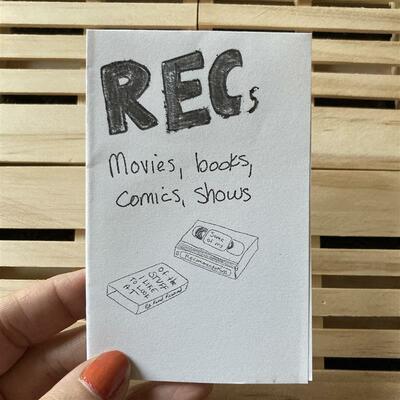 RECs
Movies, books,
comics, shows
Some
of my
Recommendations
OF the
STUFF
I LIKE
TO LOOK
AT